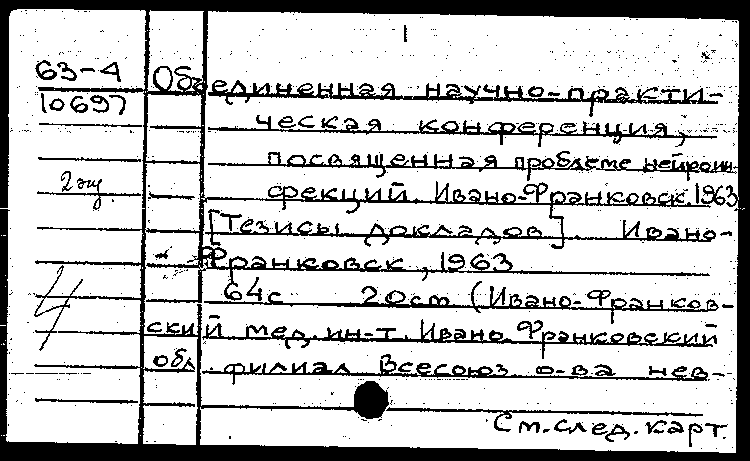 1
63-4 Объединенная научно-практи-
10697
ческая конференция,
посвященная проблеме нейроин-
2 экз.
фекций. Ивано-Франковск. 1963
[Тезисы докладов]. Ивано-
Франковск, 1963
64с 20см (Ивано-Франков-
4
ский мед. ин-т. Ивано-Франковский
обл. филиал Всесоюз. о-ва нев-
См. след. карт.